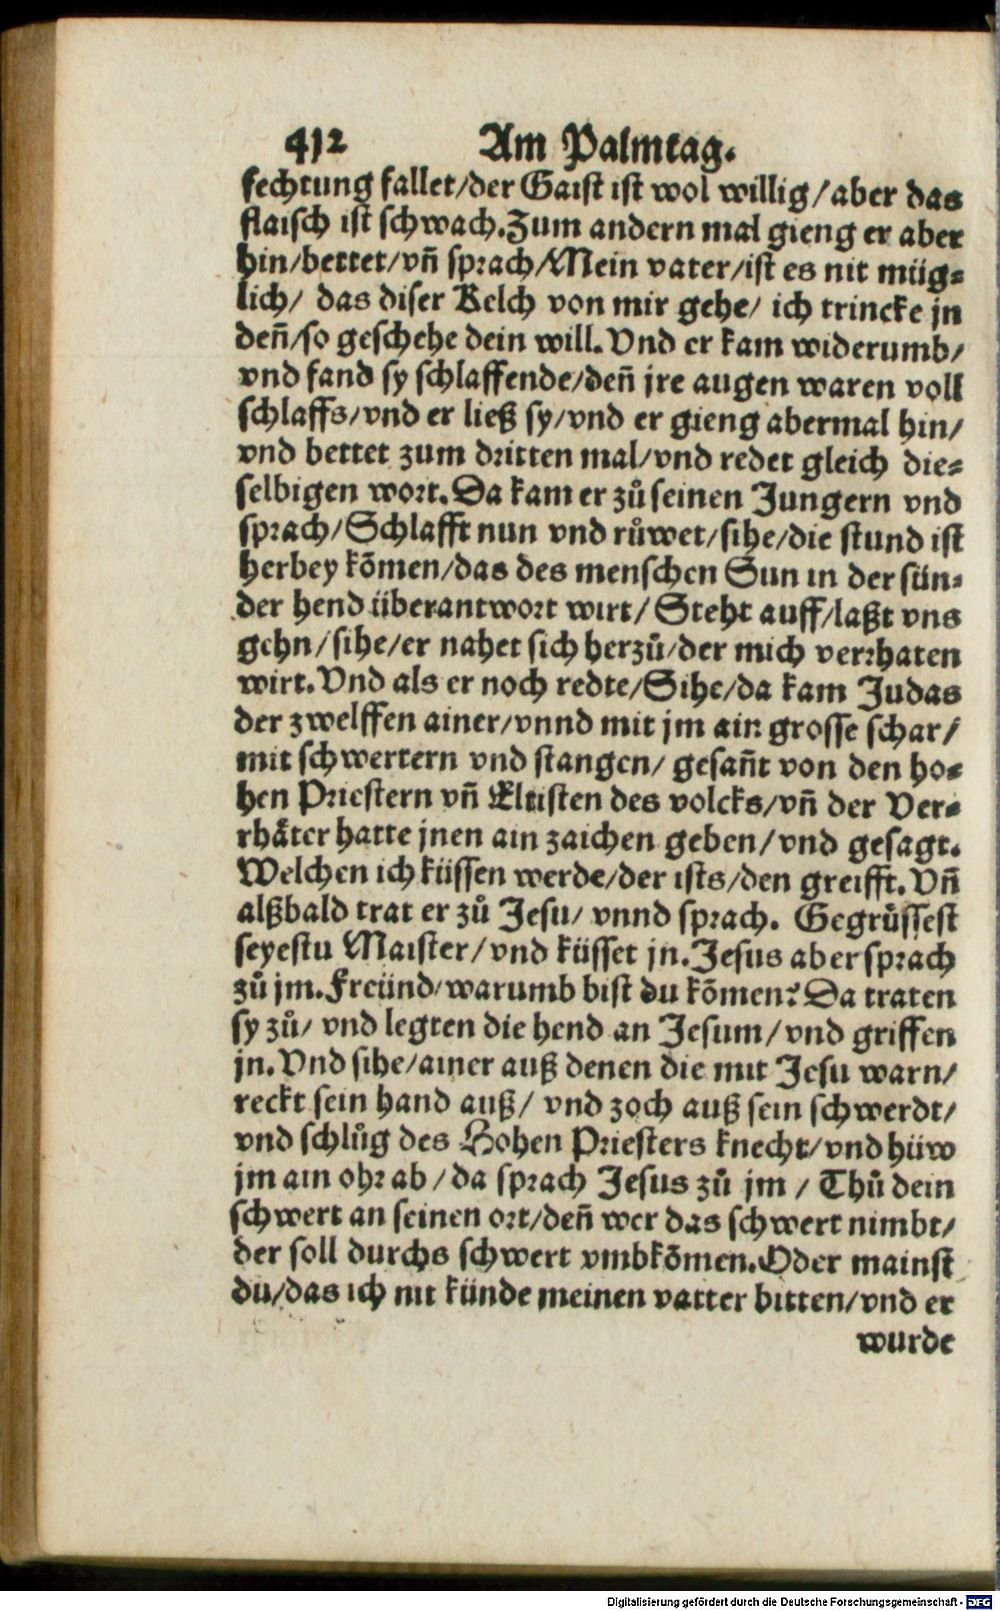 412 Am Palmtag.
fechtung fallet/der Gaist ist wol willig/aber das
flaisch ist schwach.Zum andern mal gieng er aber
hin/bettet/vñ sprach/Mein vater/ist es nit müg⸗
lich/ das diser Kelch von mir gehe/ ich trincke jn
deñ/so geschehe dein will. Vnd er kam widerumb/
vnd fand sy schlaffende/deñ jre augen waren voll
schlaffs/vnd er ließ sy/vnd er gieng abermal hin/
vnd bettet zum dritten mal/vnd redet gleich die⸗
selbigen wort. Da kam er zů seinen Jungern vnd
sprach/Schlafft nun vnd růwet/sihe/die stund ist
herbey kõmen/das des menschen Sun in der sün⸗
der hend überantwort wirt/ Steht auff/laßt vns
gehn/sihe/er nahet sich herzů/der mich verrhaten
wirt. Vnd als er noch redte/Sihe/da kam Judas
der zwelffen ainer/vnnd mit jm ain grosse schar/
mit schwertern vnd stangen/ gesañt von den ho⸗
hen Priestern vñ Eltisten des volcks/vñ der Ver⸗
rhäter hatte jnen ain zaichen geben/vnd gesagt.
Welchen ich küssen werde/der ists/den greifft. Vñ
alßbald trat er zů Jesu/ vnnd sprach. Gegrüssest
seyestu Maister/vnd küsset jn. Jesus aber sprach
zů jm. Freünd/warumb bist du kõmen? Da traten
sy zů/ vnd legten die hend an Jesum/vnd griffen
jn. Vnd sihe/ainer auß denen die mit Jesu warn/
reckt sein hand auß/ vnd zoch auß sein schwerdt/
vnd schlůg des Hohen Priesters knecht/vnd hüw
jm ain ohr ab/da sprach Jesus zů jm/ Thů dein
schwert an seinen ort/deñ wer das schwert nimbt/
der soll durchs schwert vmbkõmen. Oder mainst
du/das ich nit künde meinen vatter bitten/vnd er
wurde
Digitalisierung gefördert durch die Deutsche Forschungsgemeinschaft - DFG